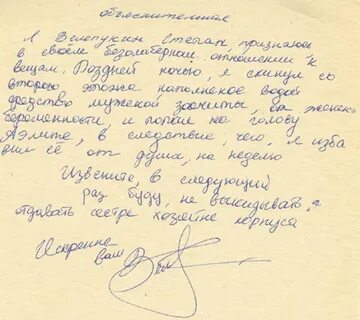 объяснительная
Я Велепукин Степан, признаюсь
в своём безолаберном отношении к
вещам. Поздней ночью, я скинул со
второго этажа наполненое водой
средство мужской защиты, от женской
беременности, и попал на голову
Аэлите, в следствие, чего, я изба
вил её от душа, на неделю
Извените, в следующий
раз буду, не выкидывать, а
отдавать сестре хозяйке корпуса
Искренне
ваш